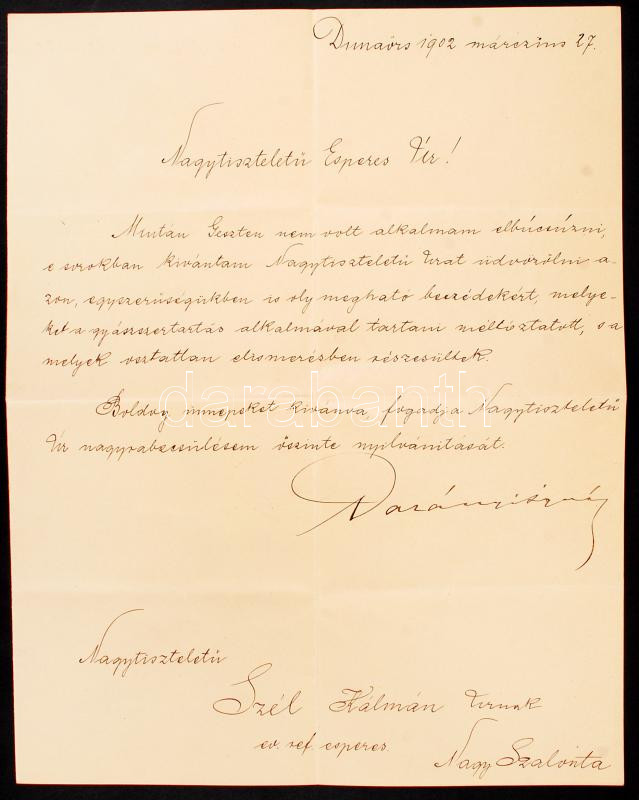 Dunaörs 1902 márczius 27.
Nagytiszteletű Esperes Úr!
Miután Geszten nem volt alkalmam elbúcsúzni,
e sorokban kivántam Nagytiszteletű Urat üdvözölni a-
zon, egyszerűségükben is oly megható beszédekért, melye-
ket a gyászszertartás alkalmával tartani méltóztatott, s a
melyek osztatlan elismerésben részesültek.
Boldog ünnepeket kivánva, fogadja Nagytiszteletű
Úr nagyrabecsülésem őszinte nyilvánitását.
Darányi Ignác
darabanth
Nagytiszteletű
Szél Kálmán Urnak
ev. ref. esperes.
Nagy Szalonta